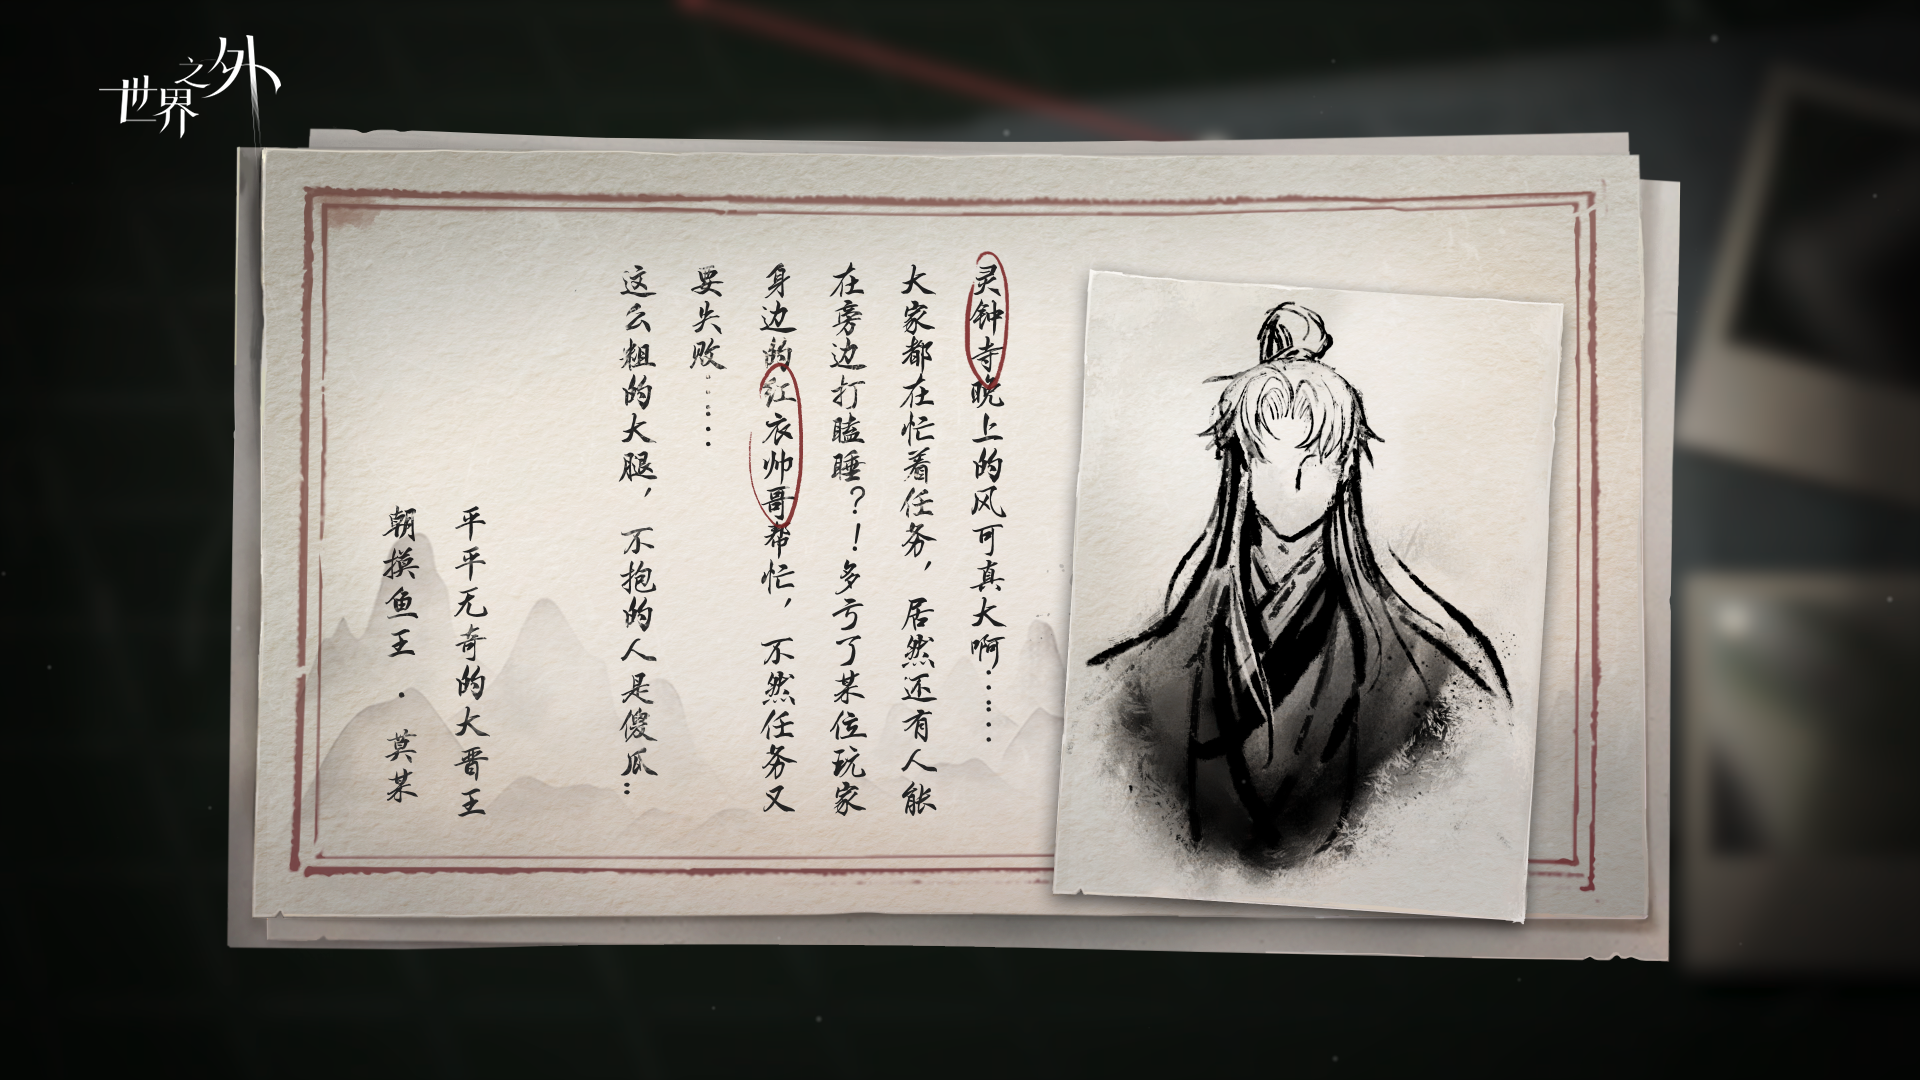 世界之外
灵钟寺晚上的风可真大啊……
大家都在忙着任务，居然还有人能
在旁边打瞌睡？！多亏了某位玩家
身边的红衣帅哥帮忙，不然任务又
要失败……
这么粗的大腿，不抱的人是傻瓜：
平平无奇的大晋王
朝摸鱼王·莫某